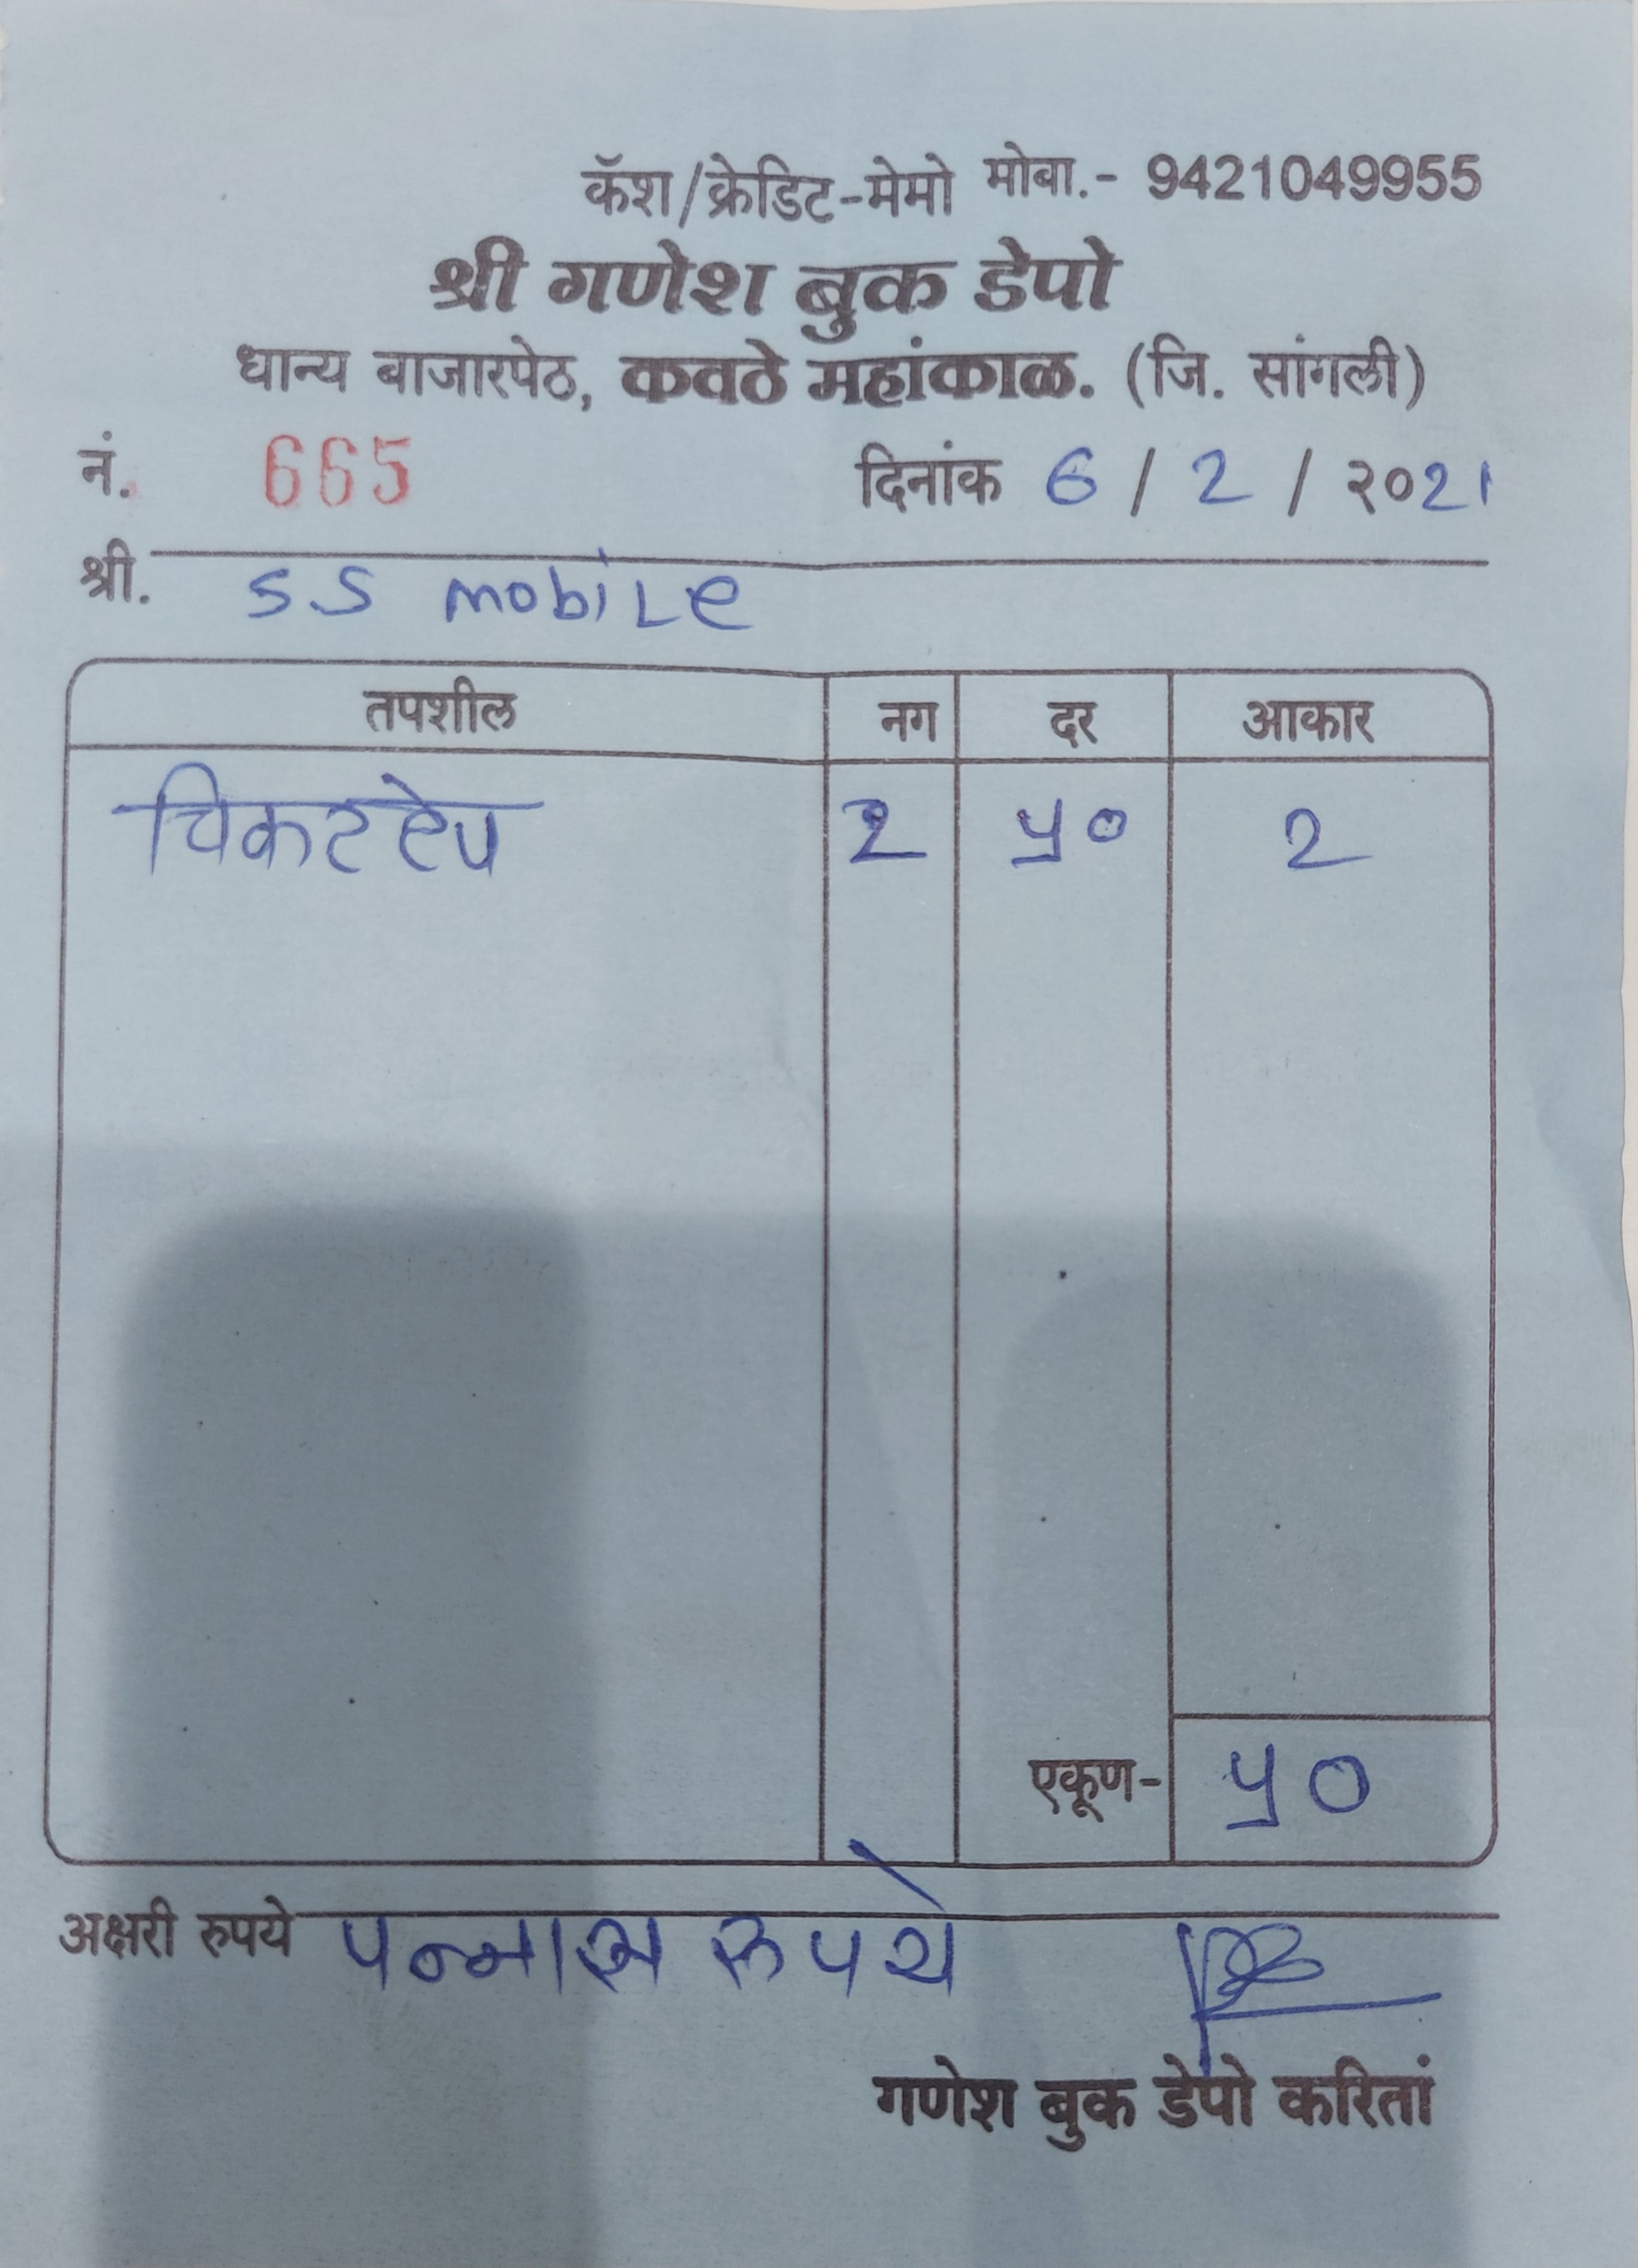 कॅश/क्रेडिट-मेमो मोबा.- 9421049955
श्री गणेश बुक डेपो
धान्य बाजारपेठ, कवठे महांकाळ. (जि. सांगली)
नं. 665 दिनांक 6 / 2 / २०21
श्री. SS mobile
तपशील नग दर आकार
चिकटटेप 2 ५० 2
एकूण- ५०
अक्षरी रुपये पन्नास रुपये
गणेश बुक डेपो करितां